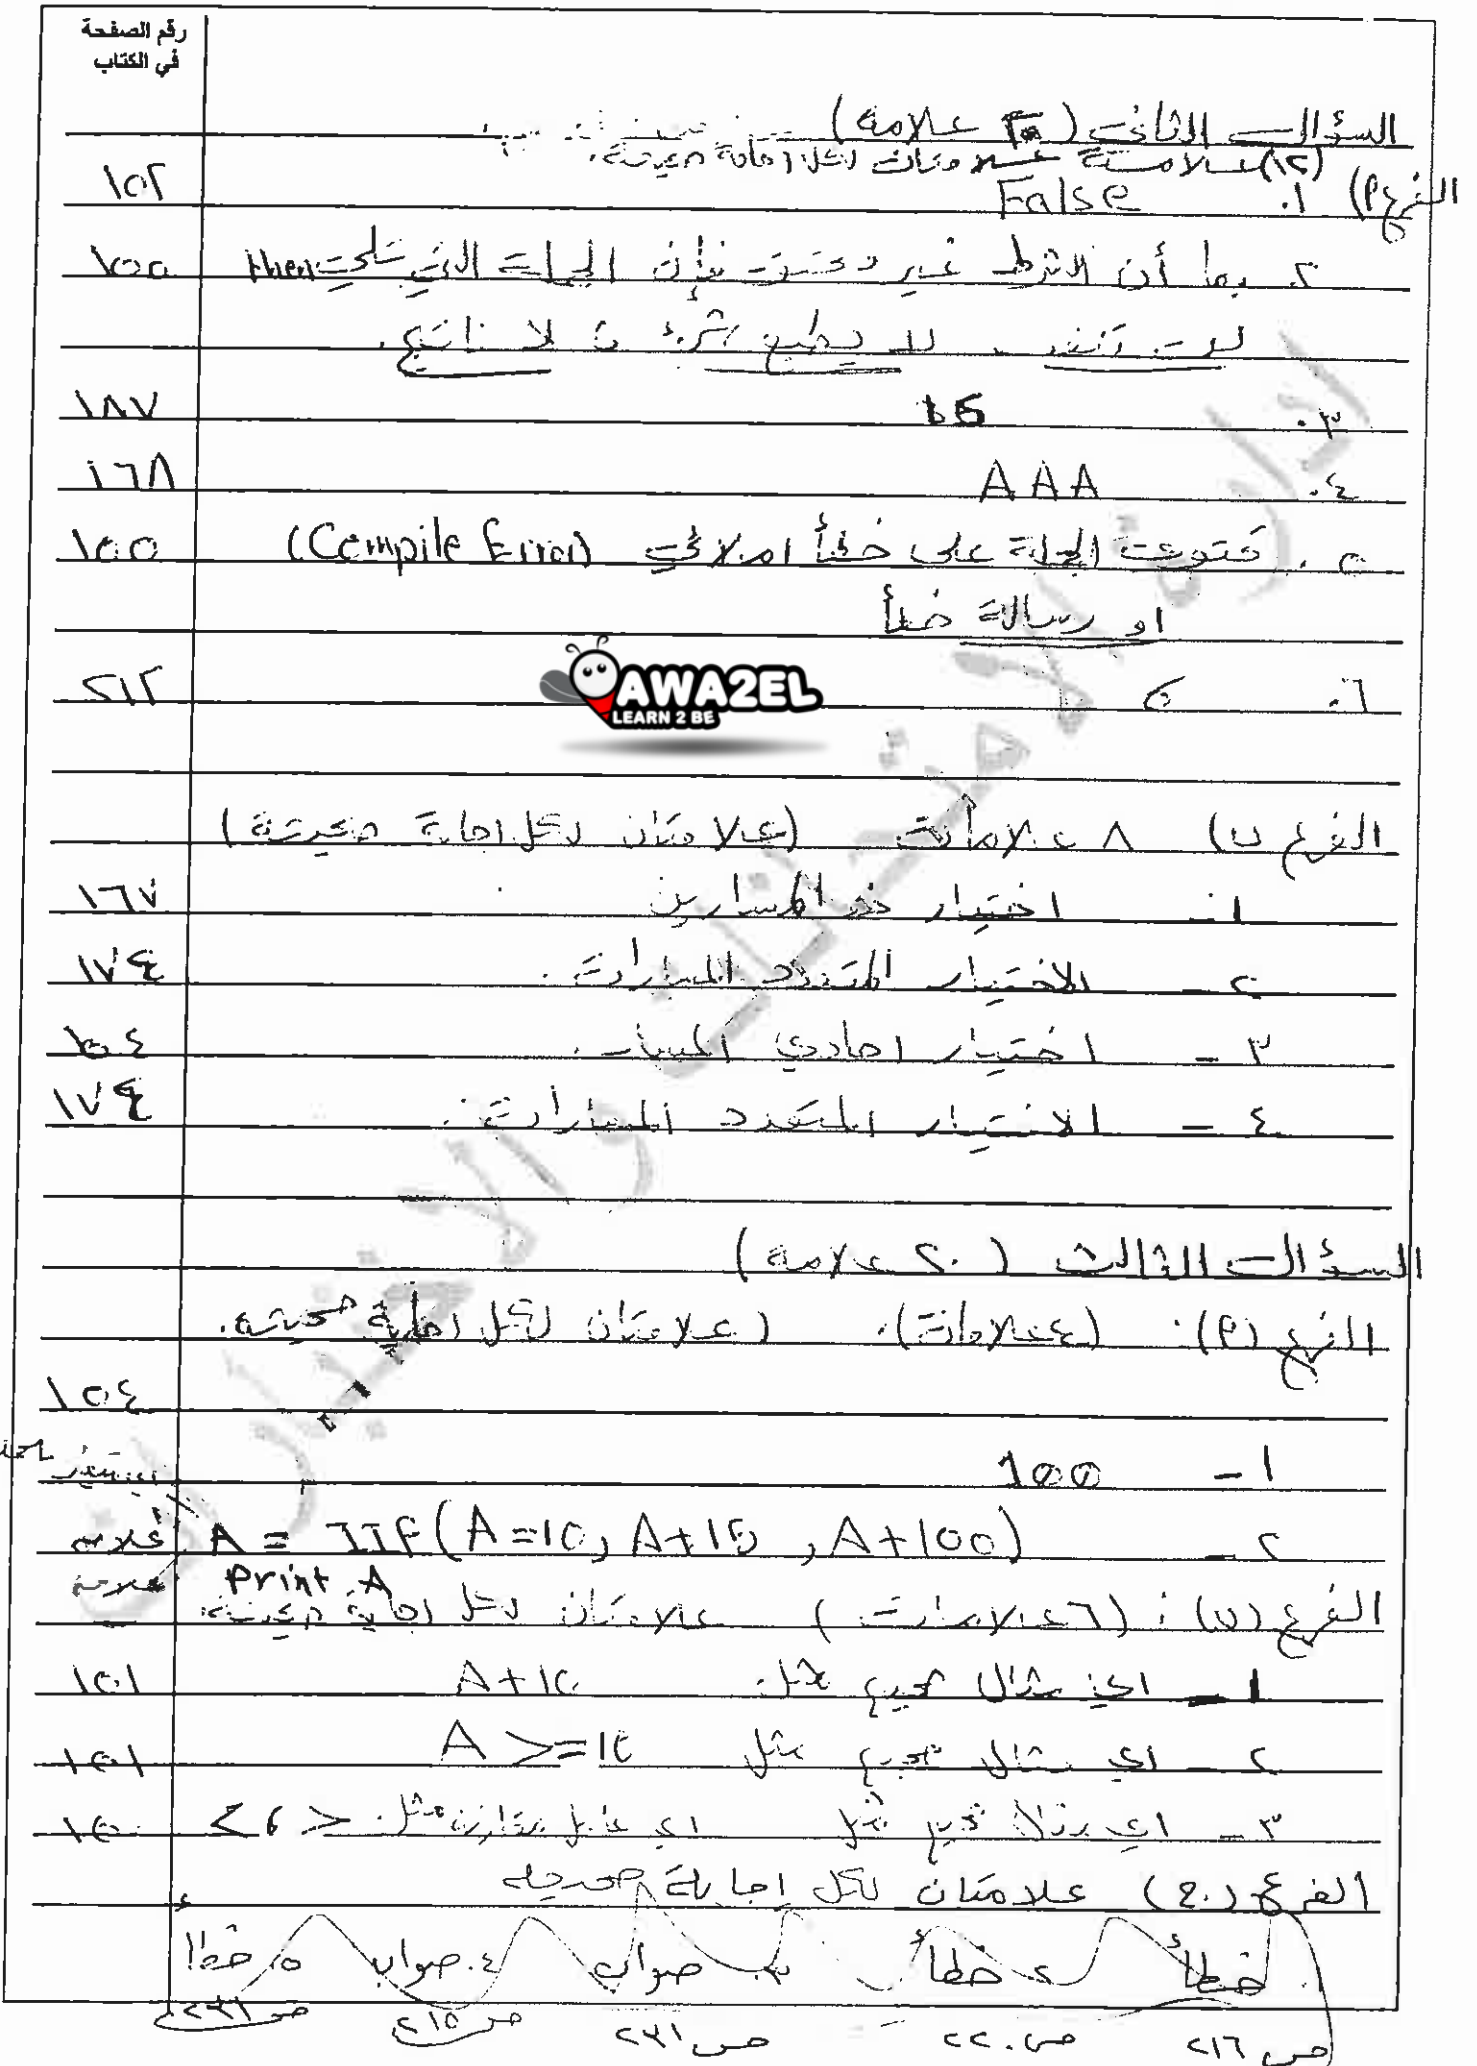 رقم الصفحة
في الكتاب
السؤال الثاني ( علامة)
(١٢) علامة علامتان لكل إجابة صحيحة.
الفرع أ) ١. False ١٥٢
٢. بما أن الشرط غير متحقق فإن الجملة التي تلي then ١٥٥
لا تنفذ لا يطبع شيء لا ناتج.
٣. 15 ١٨٧
٤. AAA ١٦٨
٥. تحتوي الجملة على خطأ املائي (Compile Error) ١٥٥
او رسالة خطأ
٦. ٢١٢
AWA2EL
LEARN 2 BE
الفرع ب) ٨ علامات (علامتان لكل اجابة صحيحة)
١- اختيار ذو المسارين ١٦٧
٢- الاختيار المتعدد المسارات. ١٧٤
٣- اختيار احادي المسار. ١٥٤
٤- الاختيار المتعدد المسارات. ١٧٤
السؤال الثالث (٢٠ علامة)
الفرع (أ): (٤ علامات). (علامتان لكل إجابة صحيحة.
١٥٤
١- 100
٢- A = IIF(A=10, A+10, A+100) علامة
Print A علامة
الفرع (ب): (٦ علامات) علامتان لكل إجابة صحيحة.
١- اي مثال صحيح مثل A+10 ١٥١
٢- اي مثال صحيح مثل A >=10 ١٥١
٣- اي مثال صحيح مثل اي عامل مقارنة مثل > ، < ١٥٠
الفرع (ج) علامتان لكل إجابة صحيحة
١. خطأ ٢. خطأ ٣. صواب ٤. صواب ٥. خطأ
ص ٢١٦ ص ٢٢٠ ص ٢٣١ ص ٢١٥ ص ٢٣١